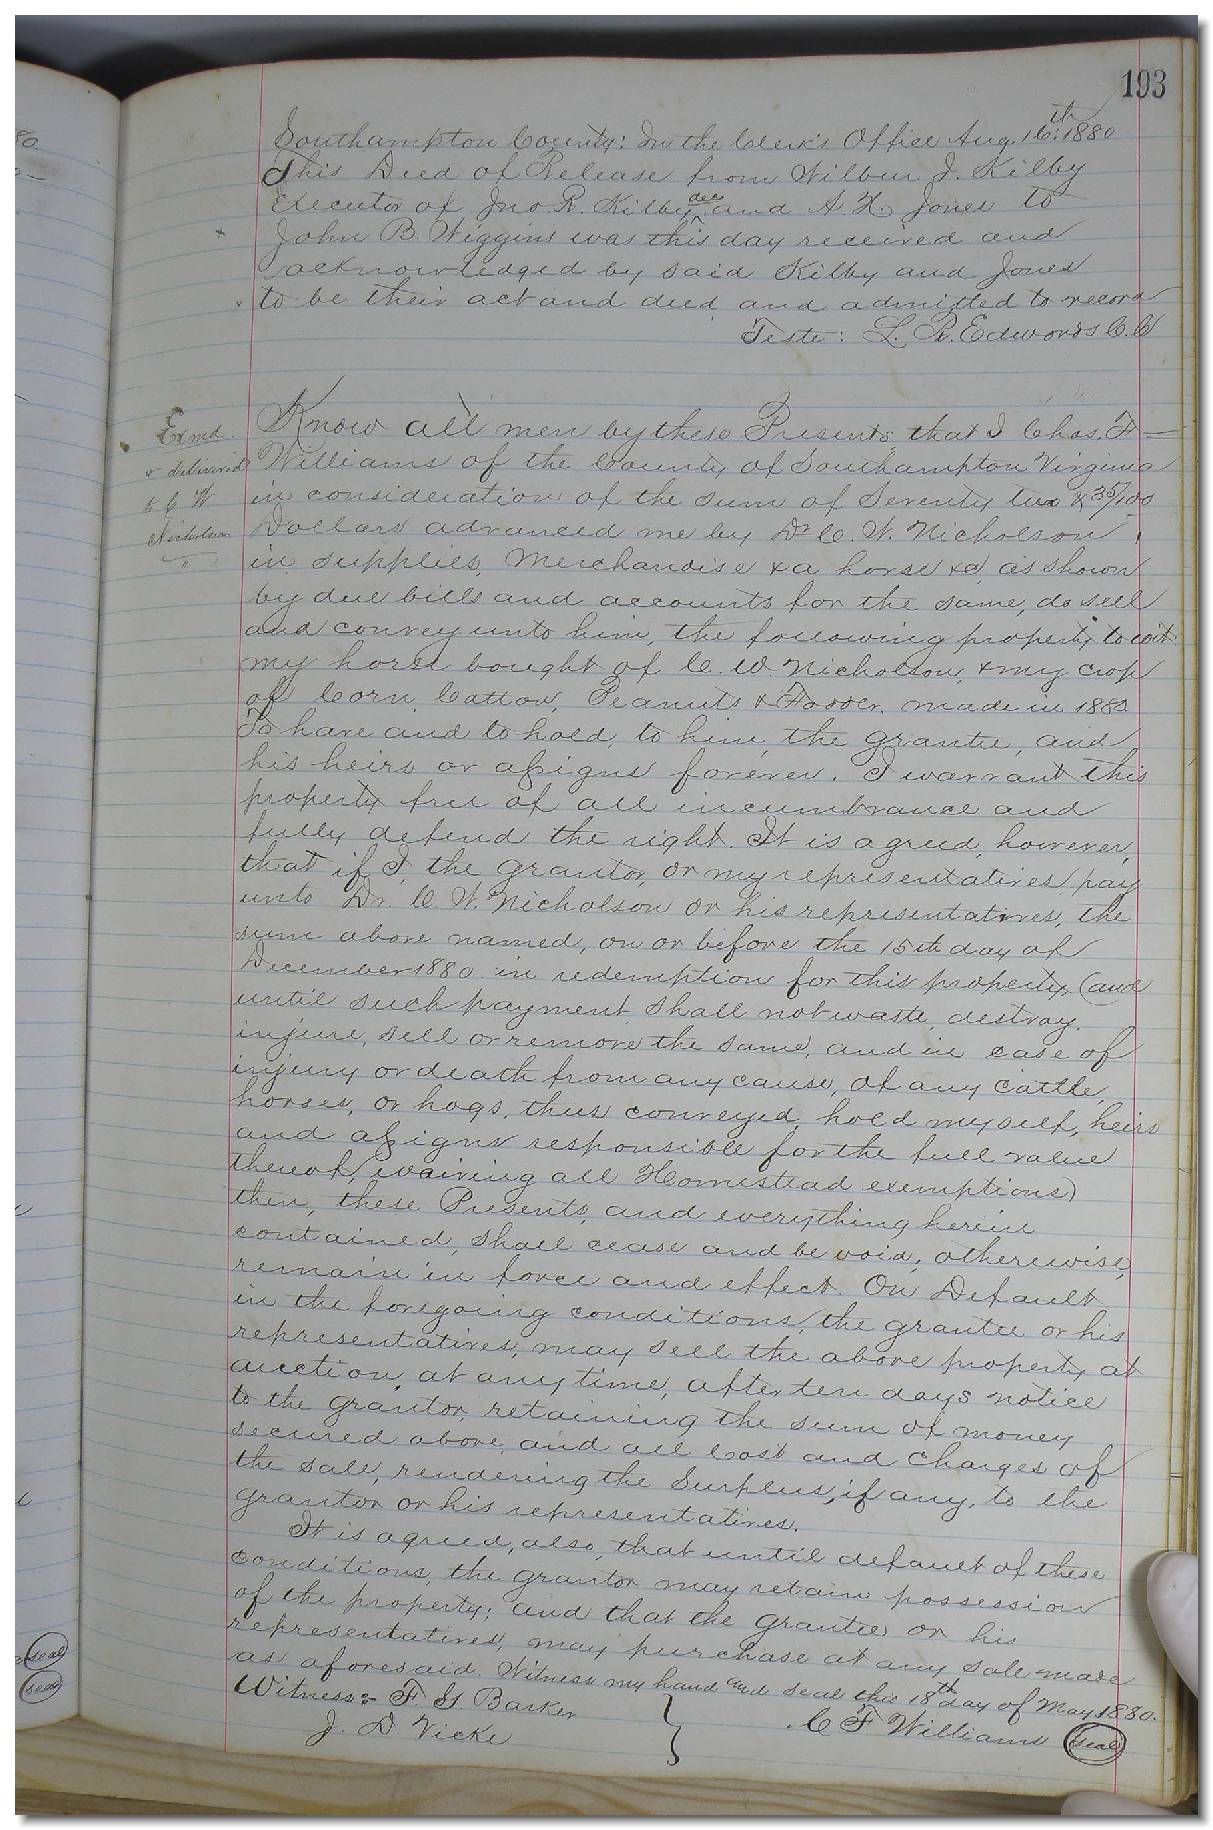 193
Southampton County: In the Clerk's Office Aug. 16th: 1880
This Deed of Release from Wilbur J. Kilby
Executor of Jno R. Kilby dec and A. H. Jones to
John B. Wiggins was this day received and
acknowledged by said Kilby and Jones
to be their act and deed and admitted to record
Teste: L. R. Edwards C.C
Exmd.
& delivered
to C W
Nicholson
Know all men by these Presents that I Chas. F
Williams of the County of Southampton Virginia
in consideration of the sum of Seventy two & 35/100
Dollars advanced me by Dr C. W. Nicholson
in supplies, Merchandise & a horse &c, as shown
by due bills and accounts for the same, do sell
and convey unto him, the following property to wit:
my horse bought of C. W. Nicholson, & my crop
of Corn, Cotton, Peanuts & Fodder, made in 1880
To have and to hold, to him, the grantee, and
his heirs or assigns forever. I warrant this
property free of all incumbrance and
fully defend the right. It is agreed, however,
that if I, the grantor, or my representatives pay
unto Dr. C. W. Nicholson or his representatives, the
sum above named, on or before the 15th day of
December 1880 in redemption for this property, (and
until such payment shall not waste, destroy,
injure, sell or remove the same, and in case of
injury or death from any cause, of any cattle,
horses, or hogs, thus conveyed, hold myself, heirs
and assigns responsible for the full value
thereof, waiving all Homestead exemptions)
then, these Presents, and everything herein
contained, shall cease and be void; otherwise,
remain in force and effect. On Default
in the foregoing conditions, the grantee or his
representatives, may sell the above property at
auction, at any time, after ten days notice
to the grantor, retaining the sum of money
secured above, and all Cost and Charges of
the sale, rendering the Surplus, if any, to the
grantor or his representatives.
It is agreed, also, that until default of these
conditions, the grantor may retain possession
of the property; and that the grantee or his
representatives, may purchase at any sale made
as aforesaid. Witness my hand and seal this 18th day of May 1880.
Witness:- F. G Barker
C F Williams seal
J. D Vicks
seal
seal